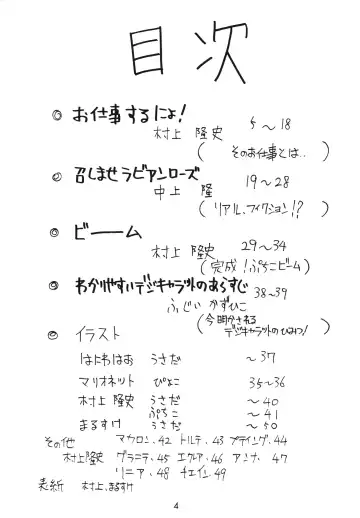 目次
◎ お仕事するにょ!
村上 隆史 5〜18
(そのお仕事とは..)
◎ 召しませラビアンローズ
中上 隆 19〜28
(リアル、フィクション!?)
◎ ビーーム
村上 隆史 29〜34
(完成!ぷちこビーム)
◎ わかりやすいデジキャラットのあらすじ
ふじい かずひこ 38〜39
(今明かされるデジキャラットのひみつ!)
◎ イラスト
はにわはお うさだ 〜37
マリオネット ぴよこ 35〜36
村上 隆史 うさだ 〜40
ぷちこ 〜41
まるすけ うさだ 〜50
その他 マカロン.42 トルテ.43 プティング.44
村上隆史 グラニテ.45 エクレア.46 アンナ.47
リニア.48 チェイン.49
表紙 村上、まるすけ
4